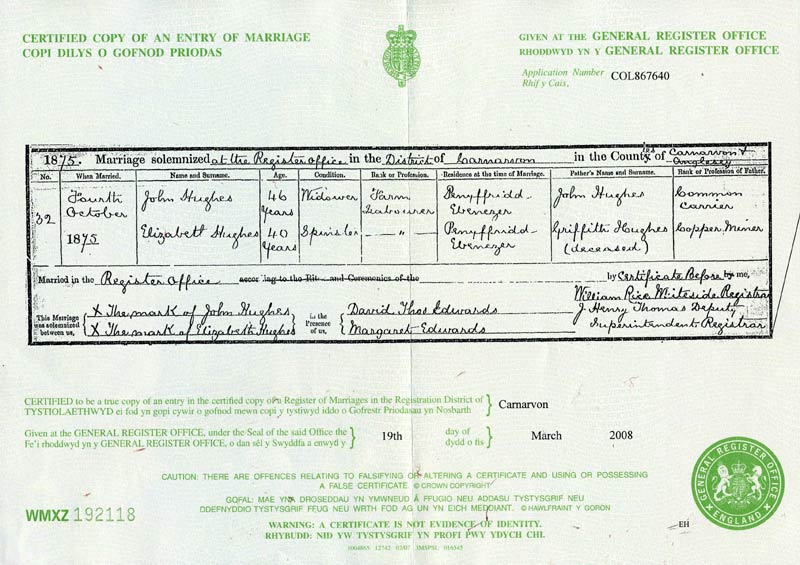 CERTIFIED COPY OF AN ENTRY OF MARRIAGE
COPI DILYS O GOFNOD PRIODAS
GIVEN AT THE GENERAL REGISTER OFFICE
RHODDWYD YN Y GENERAL REGISTER OFFICE
Application Number COL867640
Rhif y Cais,
1875. Marriage solemnized at the Register Office in the District of Carnarvon in the Counties of Carnarvon & Anglesey
No. When Married. Name and Surname. Age. Condition. Rank or Profession. Residence at the time of Marriage. Father's Name and Surname. Rank or Profession of Father.
32 Fourth October 1875
John Hughes 46 Years Widower Farm Labourer Penyffridd- Ebenezer John Hughes Common Carrier
Elizabeth Hughes 40 Years Spinster — " — Penyffridd- Ebenezer Griffith Hughes (deceased) Copper Miner
Married in the Register Office according to the Rites and Ceremonies of the by Certificate Before by me,
This Marriage was solemnized between us,
X The mark of John Hughes
X The mark of Elizabeth Hughes
in the Presence of us,
David Thos Edwards
Margaret Edwards
William Rice Registrar
J. Henry Thomas Deputy
Superintendent Registrar
CERTIFIED to be a true copy of an entry in the certified copy of a Register of Marriages in the Registration District of
TYSTIOLAETHWYD ei fod yn gopi cywir o gofnod mewn copi y tystiwyd iddo o Gofrestr Priodasau yn Nosbarth
Carnarvon
Given at the GENERAL REGISTER OFFICE, under the Seal of the said Office the
Fe'i rhoddwyd yn y GENERAL REGISTER OFFICE, o dan sêl y Swyddfa a enwyd y
19th day of March 2008
dydd o fis
CAUTION: THERE ARE OFFENCES RELATING TO FALSIFYING OR ALTERING A CERTIFICATE AND USING OR POSSESSING
A FALSE CERTIFICATE © CROWN COPYRIGHT
GOFAL: MAE YNA DROSEDDAU YN YMWNEUD Â FFUGIO NEU ADDASU TYSTYSGRIF NEU
DDEFNYDDIO TYSTYSGRIF FFUG NEU WRTH FOD AG UN YN EICH MEDDIANT. © HAWLFRAINT Y GORON
WARNING: A CERTIFICATE IS NOT EVIDENCE OF IDENTITY.
RHYBUDD: NID YW TYSTYSGRIF YN PROFI PWY YDYCH CHI.
WMXZ 192118
GENERAL REGISTER OFFICE
ENGLAND
EH